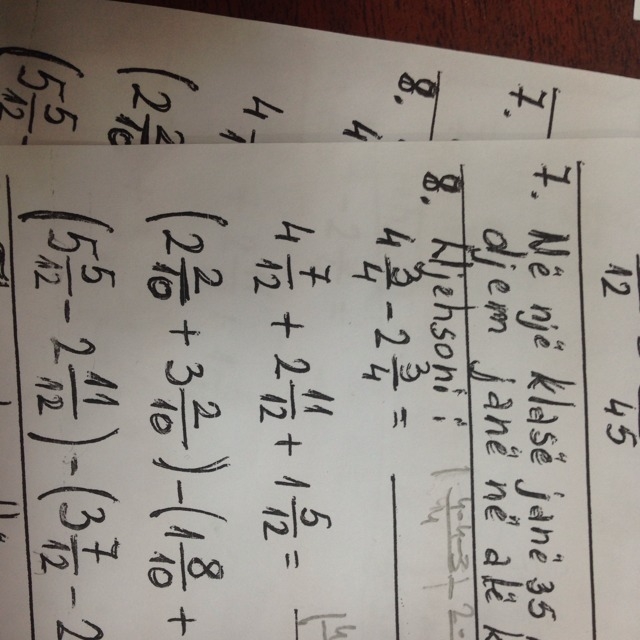 12 45
7. Në një klasë janë 35
djem janë në atë k
8. Njehsoni:
4 3/4 - 2 3/4 =
4 7/12 + 2 11/12 + 1 5/12 =
(2 2/10 + 3 2/10) - (1 8/10 +
(5 5/12 - 2 11/12) - (3 7/12 - 2
7.
8.
4
4
(2 2/10
(5 5/12 -